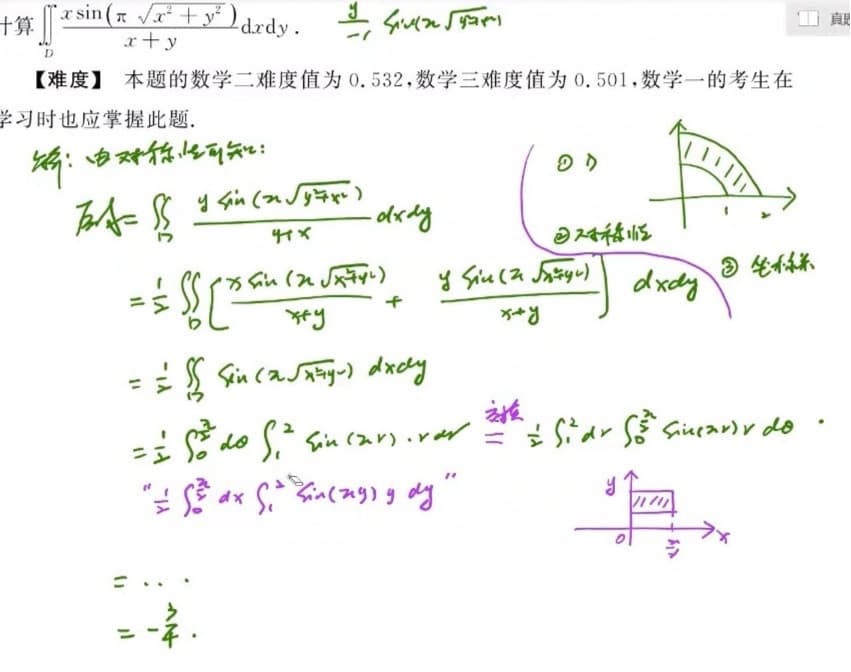 计算 ∬_D x sin(π √(x² + y²)) / (x + y) dxdy . y/ sin(π √(y²+x²))
真题
【难度】 本题的数学二难度值为 0.532,数学三难度值为 0.501,数学一的考生在
学习时也应掌握此题.
解: 由对称性可知:
① D
1 2
原式 = ∬_D y sin(π √(y²+x²)) / (y+x) dxdy
②对称性
③ 坐标系
= 1/2 ∬_D [ x sin(π √(x²+y²)) / (x+y) + y sin(π √(x²+y²)) / (x+y) ] dxdy
= 1/2 ∬_D sin(π √(x²+y²)) dxdy
= 1/2 ∫_0^{π/2} dθ ∫_1^2 sin(πr) · r dr = 1/2 ∫_1^2 dr ∫_0^{π/2} sin(πr) r dθ .
" 1/2 ∫_0^{π/2} dx ∫_1^2 sin(πy) y dy "
y
0 π/2 x
= . . .
= - 3/4 .